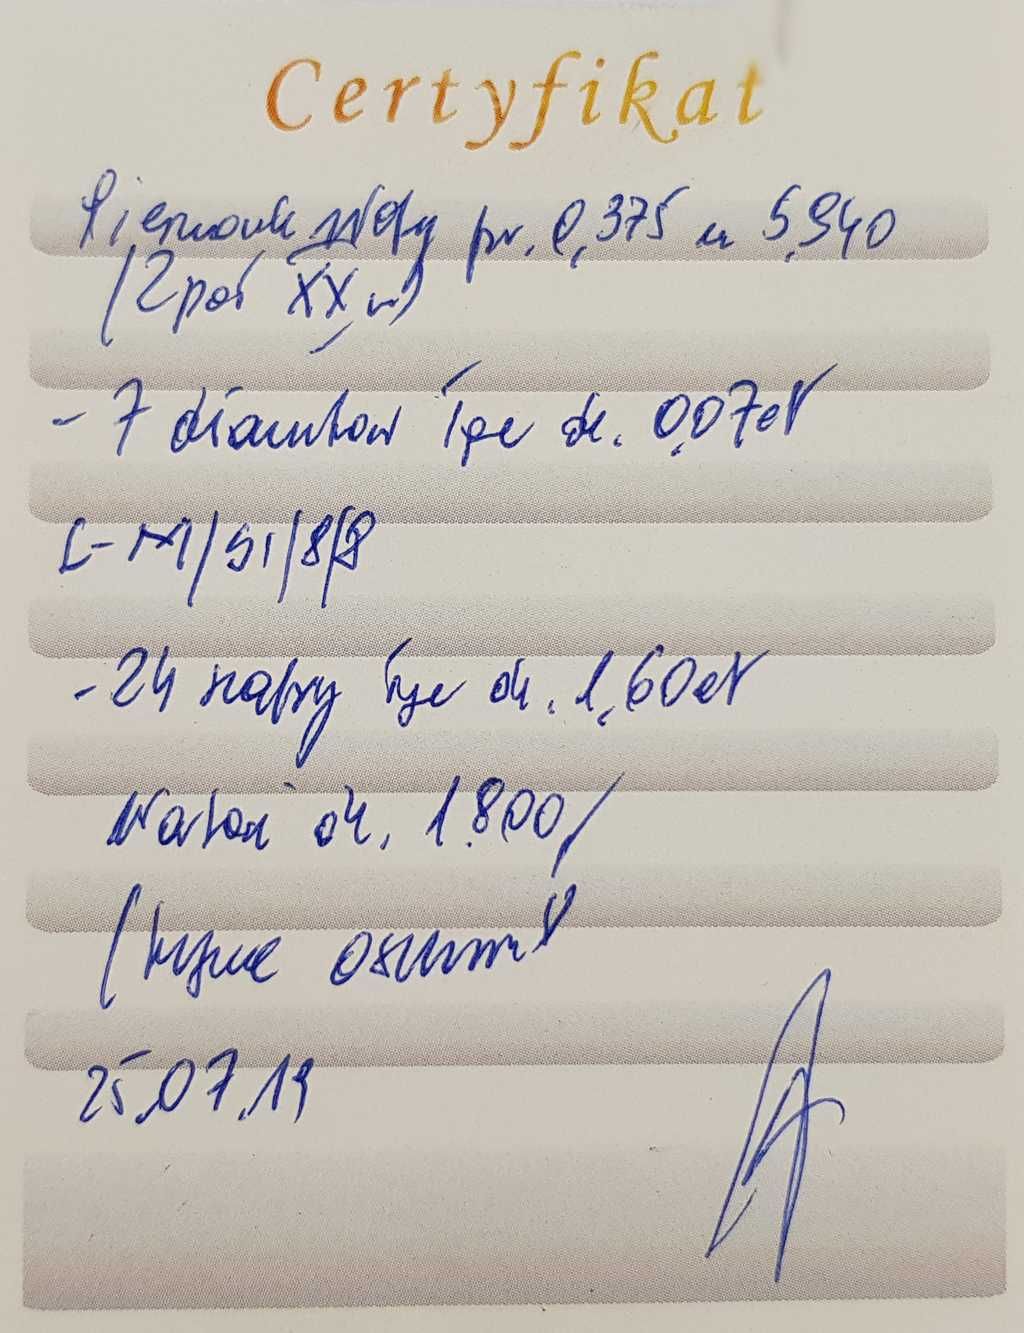 Certyfikat
Pierścionek złoty pr. 0,375 m 5,940
(2 poł XX w)
- 7 diamentów łącz ok. 0,07ct
L-M/Si/8/8
- 24 szafiry łącz ok. 1,60ct
Wartość ok. 1.800,
25.07.19